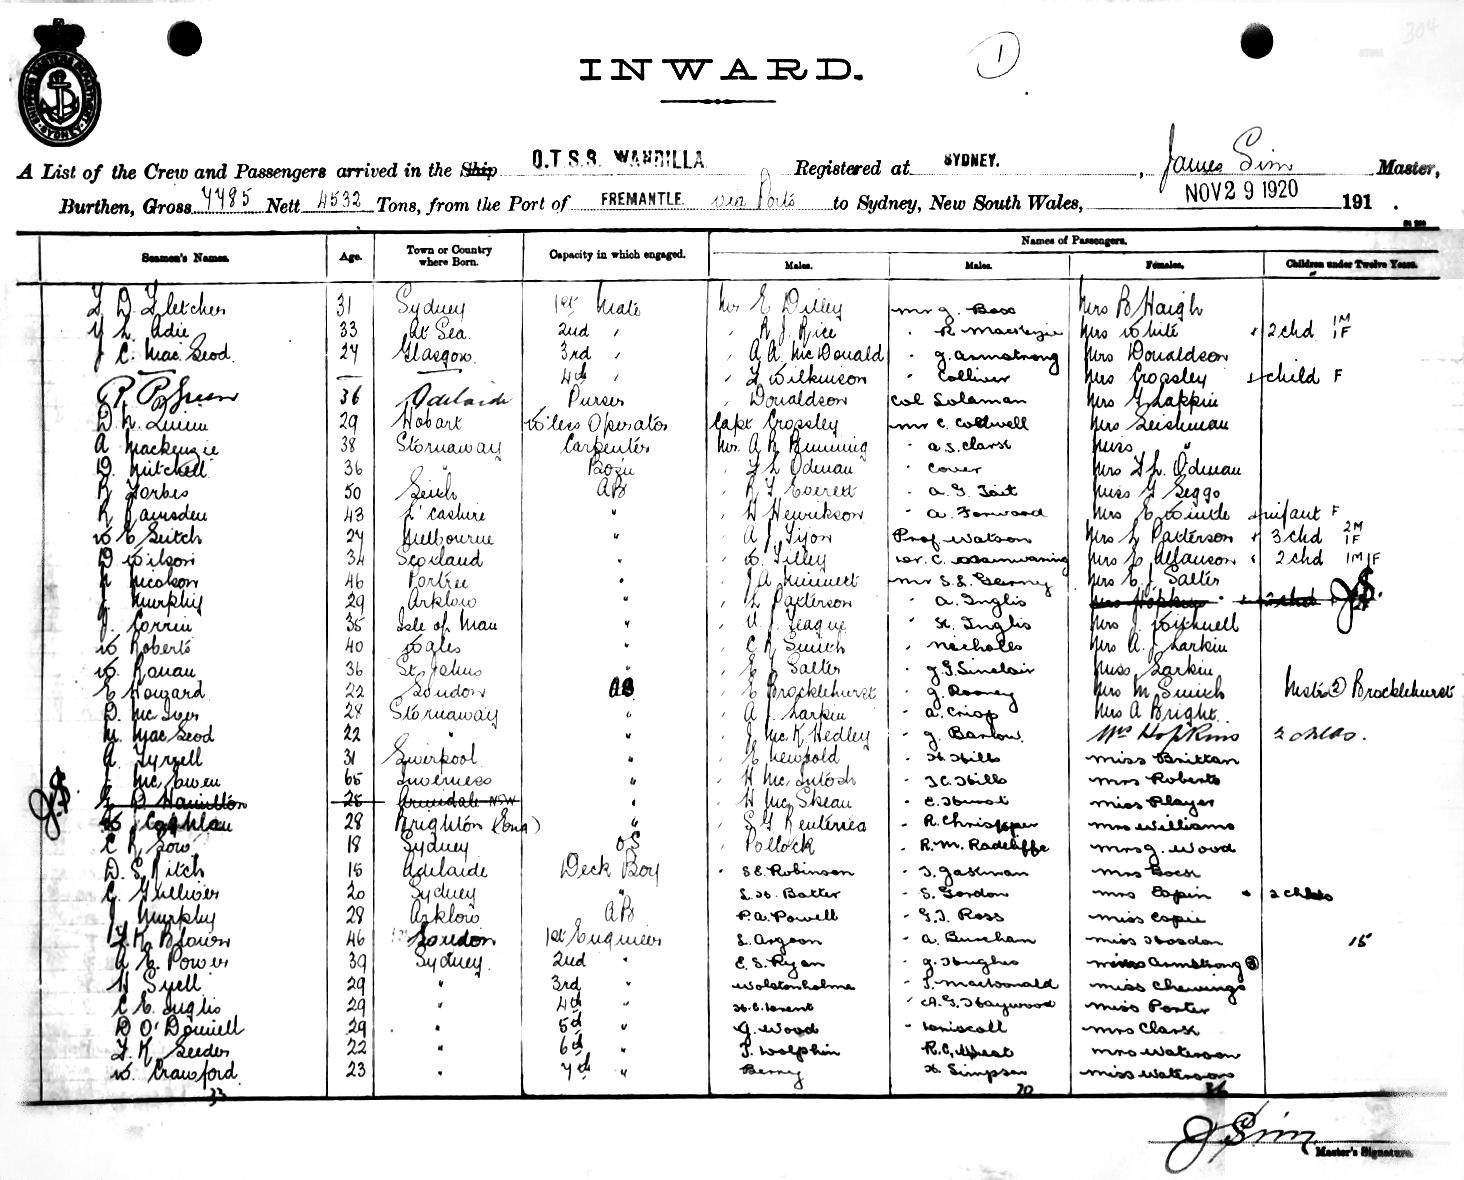 304
INWARD.
1
SHIPPING MASTERS DEPARTMENT SYDNEY
A List of the Crew and Passengers arrived in the Ship Q.T.S.S. WANDILLA Registered at SYDNEY. , James Sim Master,
Burthen, Gross 7785 Nett 4532 Tons, from the Port of FREMANTLE via Ports to Sydney, New South Wales, NOV 29 1920 191 .
Seamen's Names. Age. Town or Country where Born. Capacity in which engaged. Names of Passengers.
Males. Males. Females. Children under Twelve Years.
D Fletcher 31 Sydney 1st Mate Mr E Dilley Mr G. Boss Mrs B Haigh
Adie 33 At Sea 2nd " R J Rice " R Mackenzie Mrs White 2 chd 1M 1F
J C. MacLeod 27 Glasgow 3rd " A A McDonald " G. Armstrong Mrs Donaldson
4th " Wilkinson " Colliver Mrs Crossley child F
36 Adelaide Purser " Donaldson Col Solaman Mrs
29 Hobart W'less Operator Capt Crossley Mr C. Coldwell Mrs Leishman
A Mackenzie 38 Stornaway Carpenter Mr. A R Binning " A.S. Clark Miss "
D. Mitchell 36 " Bosn " F L Odman " Cover Mrs F L. Odman
R Forbes 50 Leith AB " R F Everett " A. G. Tait Miss G Seggo
R Lumsden 43 L'cashire " " H Henrikson " A. Forwood Mrs E White infant F
W E Leitch 27 Melbourne " " A J Tyon Prof Watson Mrs L Patterson 3 chd 2M 1F
D Wilson 34 Scotland " " W. Tilley Mrs E Allanson 2 chd 1M 1F
Nicolson 46 Portree " " J A Minnett Mr S.L. Mrs E. J Salter
J. Murphy 29 Arklow " " L Patterson " A. Inglis Mrs Hopkins 2 chd J.S.
J. Corrin 35 Isle of Man " " J. Teague " H. Inglis Mrs J
W Roberts 40 Wales " " C R Smith " Nicholls Mrs A. J Larkin
W. Ronan 36 St Johns " " E J Salter " G. F. Sinclair Miss Larkin
E Howard 22 London OS " E Brocklehurst " G. Rooney Mrs M Smith Mstrs (2) Brocklehurst
D. McIver 28 Stornaway " " A J Larkin " A. Crisp Mrs A Bright
M. MacLeod 22 " " " J McK Hedley " G. Barlow Mrs Hopkins 2 childs.
A. Tyrrell 31 Liverpool " " E Newbold " H. Hills Miss Brittan
McEwen 65 Inverness " " H McIntosh " J C. Hills Mrs Roberts
J.S. Hamilton 25 Arundale NSW " " H McSkeau " C. Hurst Miss Player
W J Coghlan 28 Brighton (Eng) " " S G Renterrea " R. Chrisopper Mrs Williams
C R Low 18 Sydney OS " Pollock " R. M. Radcliffe Mrs G. Wood
D. S Ritch 15 Adelaide Deck Boy " S E. Robinson " J. Jackman Mrs Bock
C. Gulliver 20 Sydney " L. H. Baxter " S. Gordon Mrs Espin 2 childs
J Murphy 28 Arklow AB P. A. Powell " G. J. Ross Miss Espie
K Brown 46 London 1st Engineer L. Argoon " A. Buncham Miss Hosdon 15
A E. Power 39 Sydney 2nd " E. S. Ryan " G. Hughes Misses Armstrong (2)
H Snell 29 " 3rd " Wolstenholme " J. MacDonald Miss Chewings
C E. Inglis 29 " 4th " H. C. Brent " A. G. Haywood Miss Porter
D O'Donnell 29 " 5th " G. Wood " Driscoll Mrs Clark
K Leeder 22 " 6th " J. Wolphin " R. C. Mrs Waterson
W. Crawford 23 " 7th " Berry " H Simpson Miss Waterson
33 70 36
J Sim
Master's Signature.